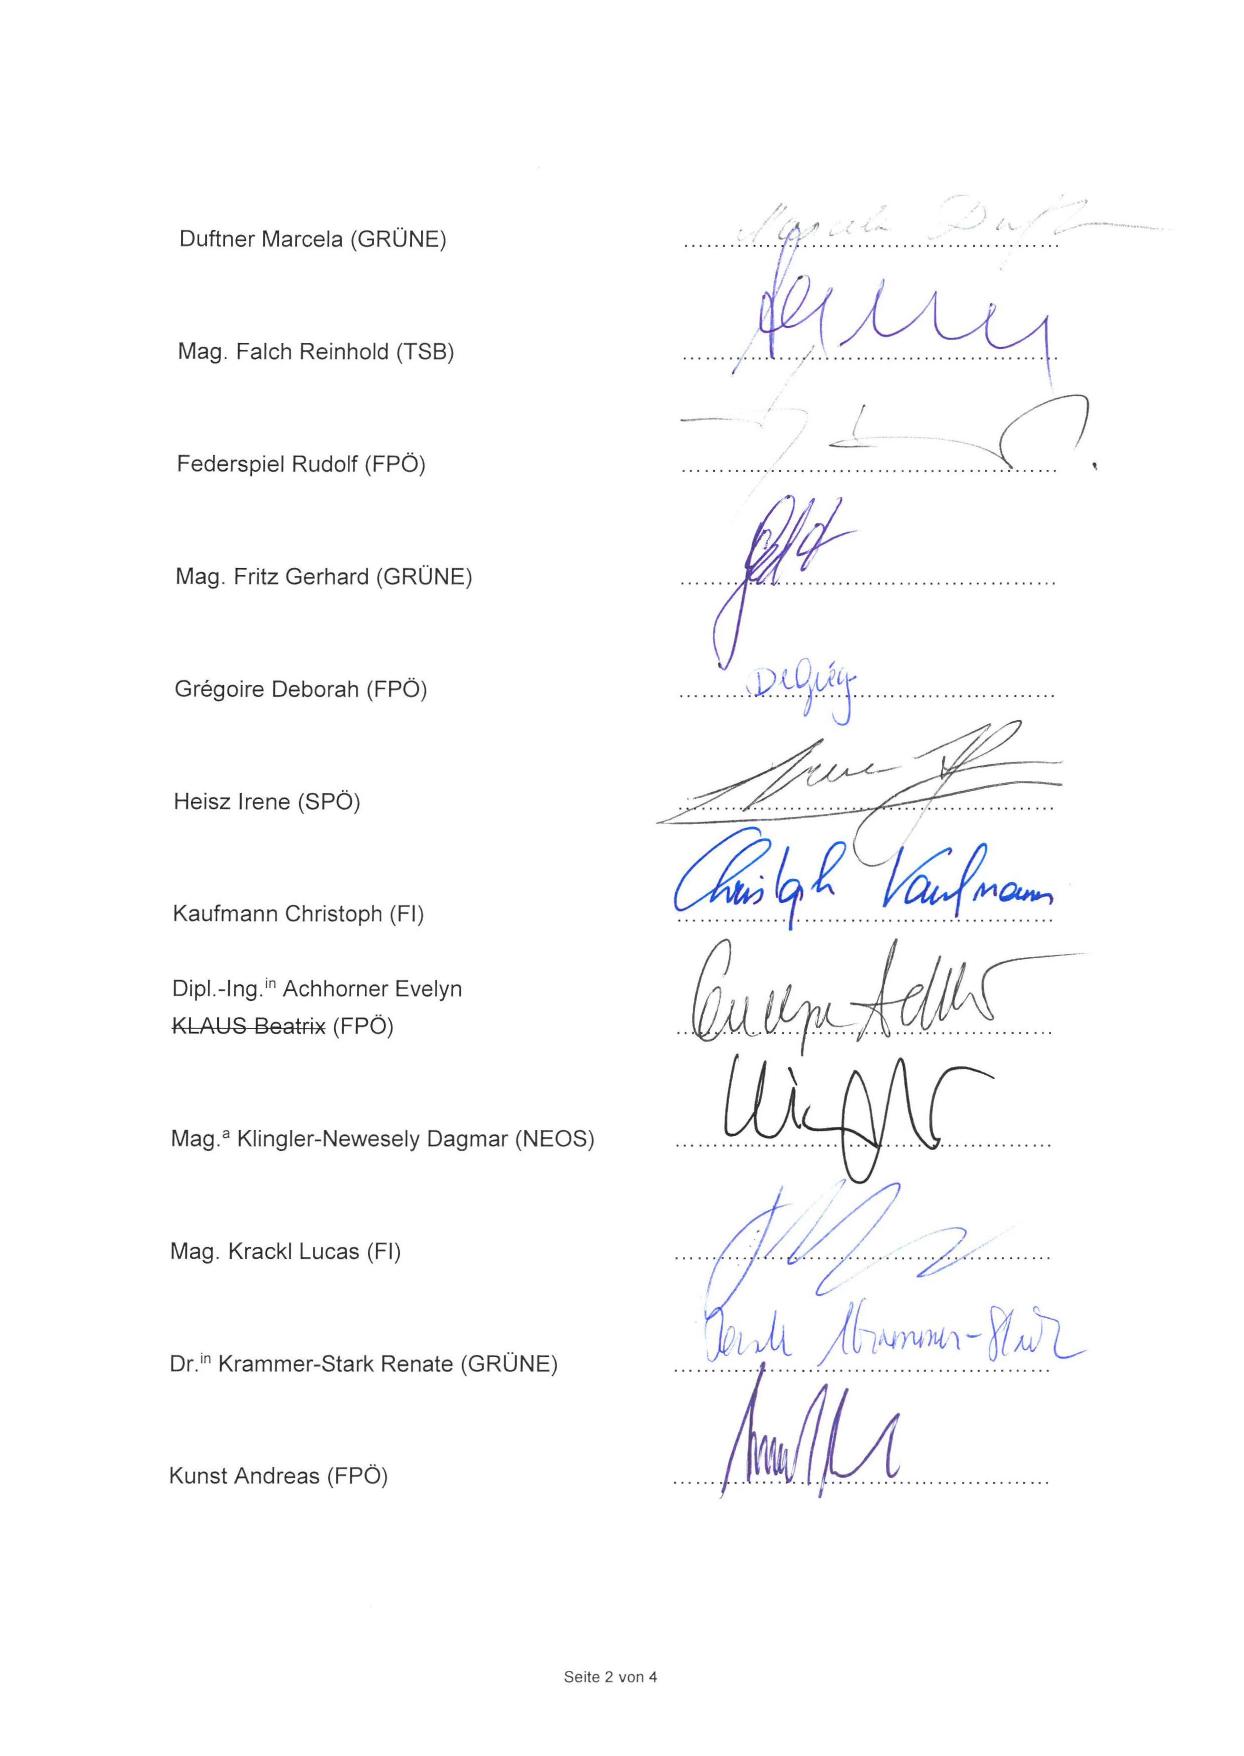 Duftner Marcela (GRÜNE) Marcela Duft
Mag. Falch Reinhold (TSB)
Federspiel Rudolf (FPÖ)
Mag. Fritz Gerhard (GRÜNE)
Grégoire Deborah (FPÖ) DeGrég
Heisz Irene (SPÖ) Irene
Kaufmann Christoph (FI) Christoph Kaufmann
Dipl.-Ing.in Achhorner Evelyn
KLAUS Beatrix (FPÖ)
Mag.a Klingler-Newesely Dagmar (NEOS)
Mag. Krackl Lucas (FI)
Dr.in Krammer-Stark Renate (GRÜNE) Krammer-Stark
Kunst Andreas (FPÖ)
Seite 2 von 4